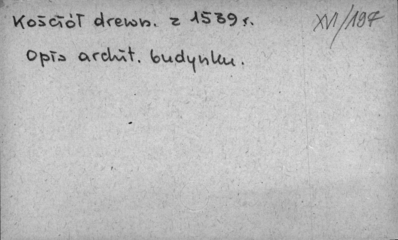 Kościół drewn. z 1539 r. XVI/197
Opis archit. budynku.